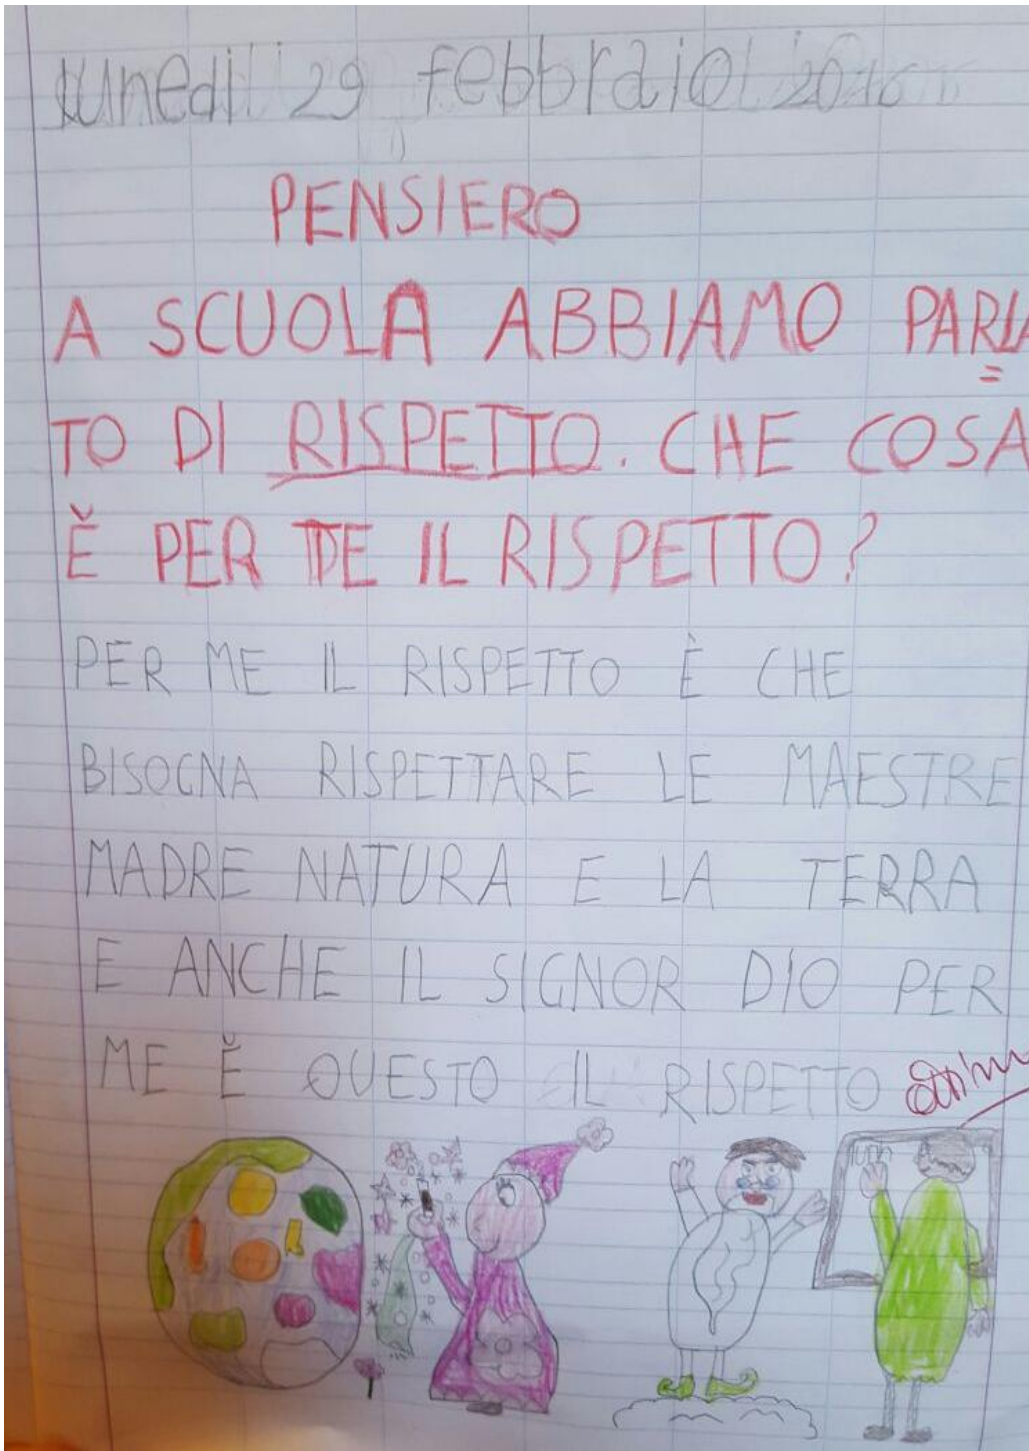 lunedì 29 febbraio 2016
PENSIERO
A SCUOLA ABBIAMO PARLA
TO DI RISPETTO. CHE COSA
È PER TE IL RISPETTO?
PER ME IL RISPETTO È CHE
BISOGNA RISPETTARE LE MAESTRE
MADRE NATURA E LA TERRA
E ANCHE IL SIGNOR DIO PER
ME È QUESTO IL RISPETTO